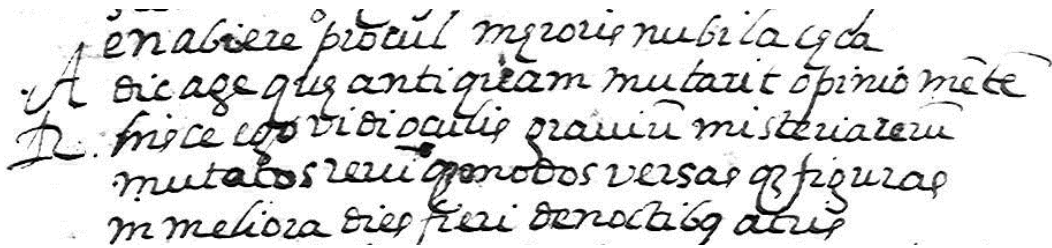 en abiere procul męroris nubila cęca
A dic age quę antiquam mutarit opinio mētē
R. hisce ego vidi oculis grauiū misteria rerū
mutatos rerū qȝ modos versas qȝ figuras
in meliora dies fieri de noctibqȝ atris